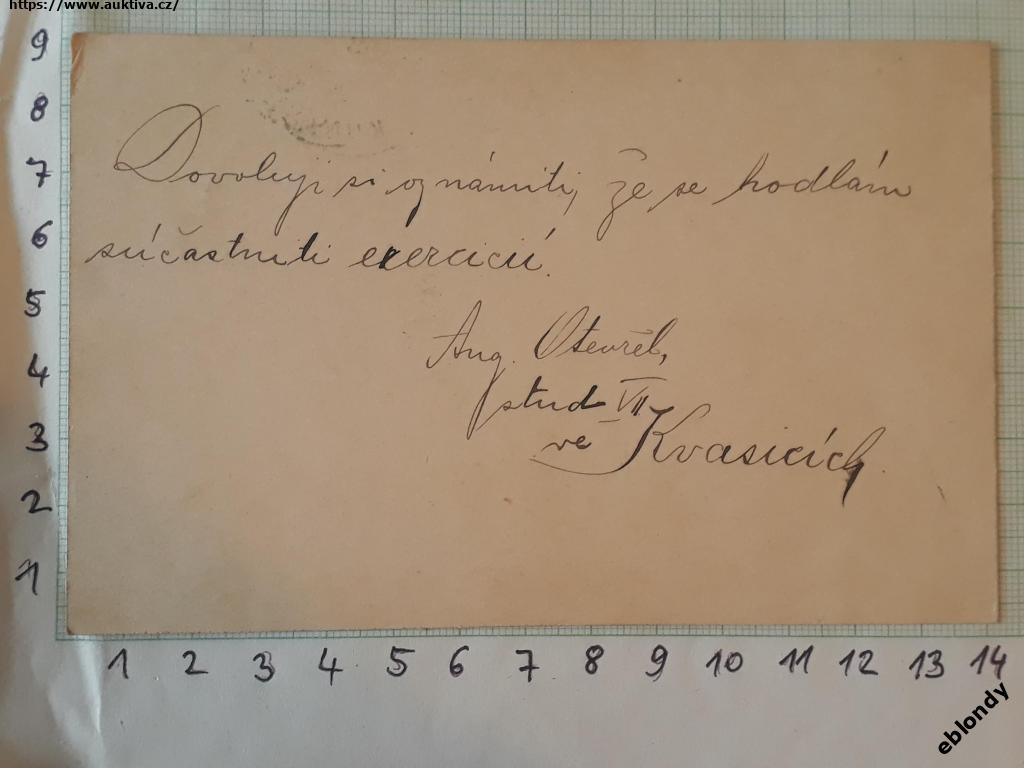 https://www.auktiva.cz/
Dovoluji si oznámiti, že se hodlám
súčastniti exercicií.
Aug. Otevřel,
stud VII
ve Kvasicích.
9
8
7
6
5
4
3
2
1
1 2 3 4 5 6 7 8 9 10 11 12 13 14
eblondy